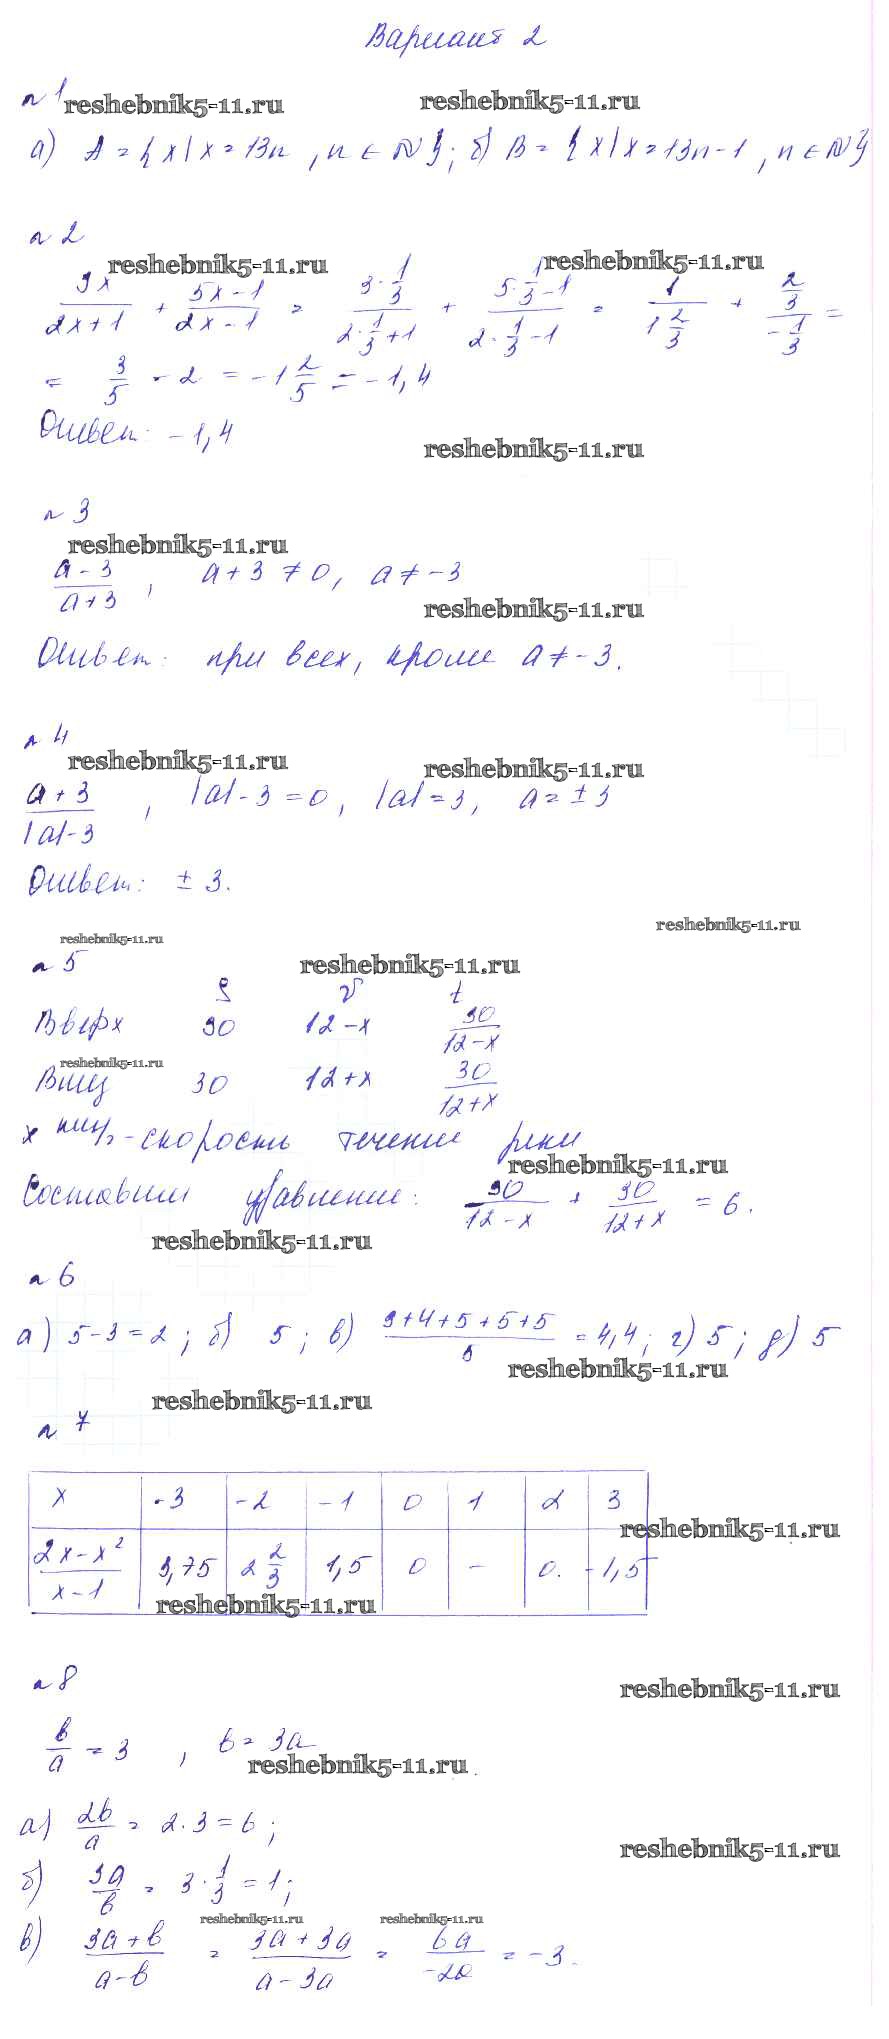 Вариант 2
№ 1
reshebnik5-11.ru reshebnik5-11.ru
а) A = {x | x = 13n, n ∈ N}; б) B = {x | x = 13n - 1, n ∈ N}
№ 2
reshebnik5-11.ru reshebnik5-11.ru
3x/(2x+1) + (5x-1)/(2x-1) = (3·1/3)/(2·1/3+1) + (5·1/3-1)/(2·1/3-1) = 1/(1 2/3) + (2/3)/(-1/3) =
= 3/5 - 2 = -1 2/5 = -1,4
Ответ: -1,4
reshebnik5-11.ru
№ 3
reshebnik5-11.ru
(a-3)/(a+3), a+3 ≠ 0, a ≠ -3
reshebnik5-11.ru
Ответ: при всех, кроме a ≠ -3.
№ 4
reshebnik5-11.ru reshebnik5-11.ru
(a+3)/(|a|-3), |a|-3 = 0, |a| = 3, a = ±3
Ответ: ± 3.
reshebnik5-11.ru
reshebnik5-11.ru
№ 5
reshebnik5-11.ru
S v t
Вверх 30 12-x 30/(12-x)
reshebnik5-11.ru
Вниз 30 12+x 30/(12+x)
x км/ч - скорость течение реки
reshebnik5-11.ru
Составим уравнение: 30/(12-x) + 30/(12+x) = 6.
reshebnik5-11.ru
№ 6
а) 5-3=2; б) 5; в) (3+4+5+5+5)/5 = 4,4; г) 5; д) 5
reshebnik5-11.ru
reshebnik5-11.ru
№ 7
x -3 -2 -1 0 1 2 3
reshebnik5-11.ru
(2x-x²)/(x-1) 3,75 2 2/3 1,5 0 - 0. -1,5
reshebnik5-11.ru
№ 8
reshebnik5-11.ru
b/a = 3, b = 3a
reshebnik5-11.ru
а) 2b/a = 2·3 = 6;
reshebnik5-11.ru
б) 3a/b = 3·1/3 = 1;
reshebnik5-11.ru reshebnik5-11.ru
в) (3a+b)/(a-b) = (3a+3a)/(a-3a) = 6a/(-2a) = -3.